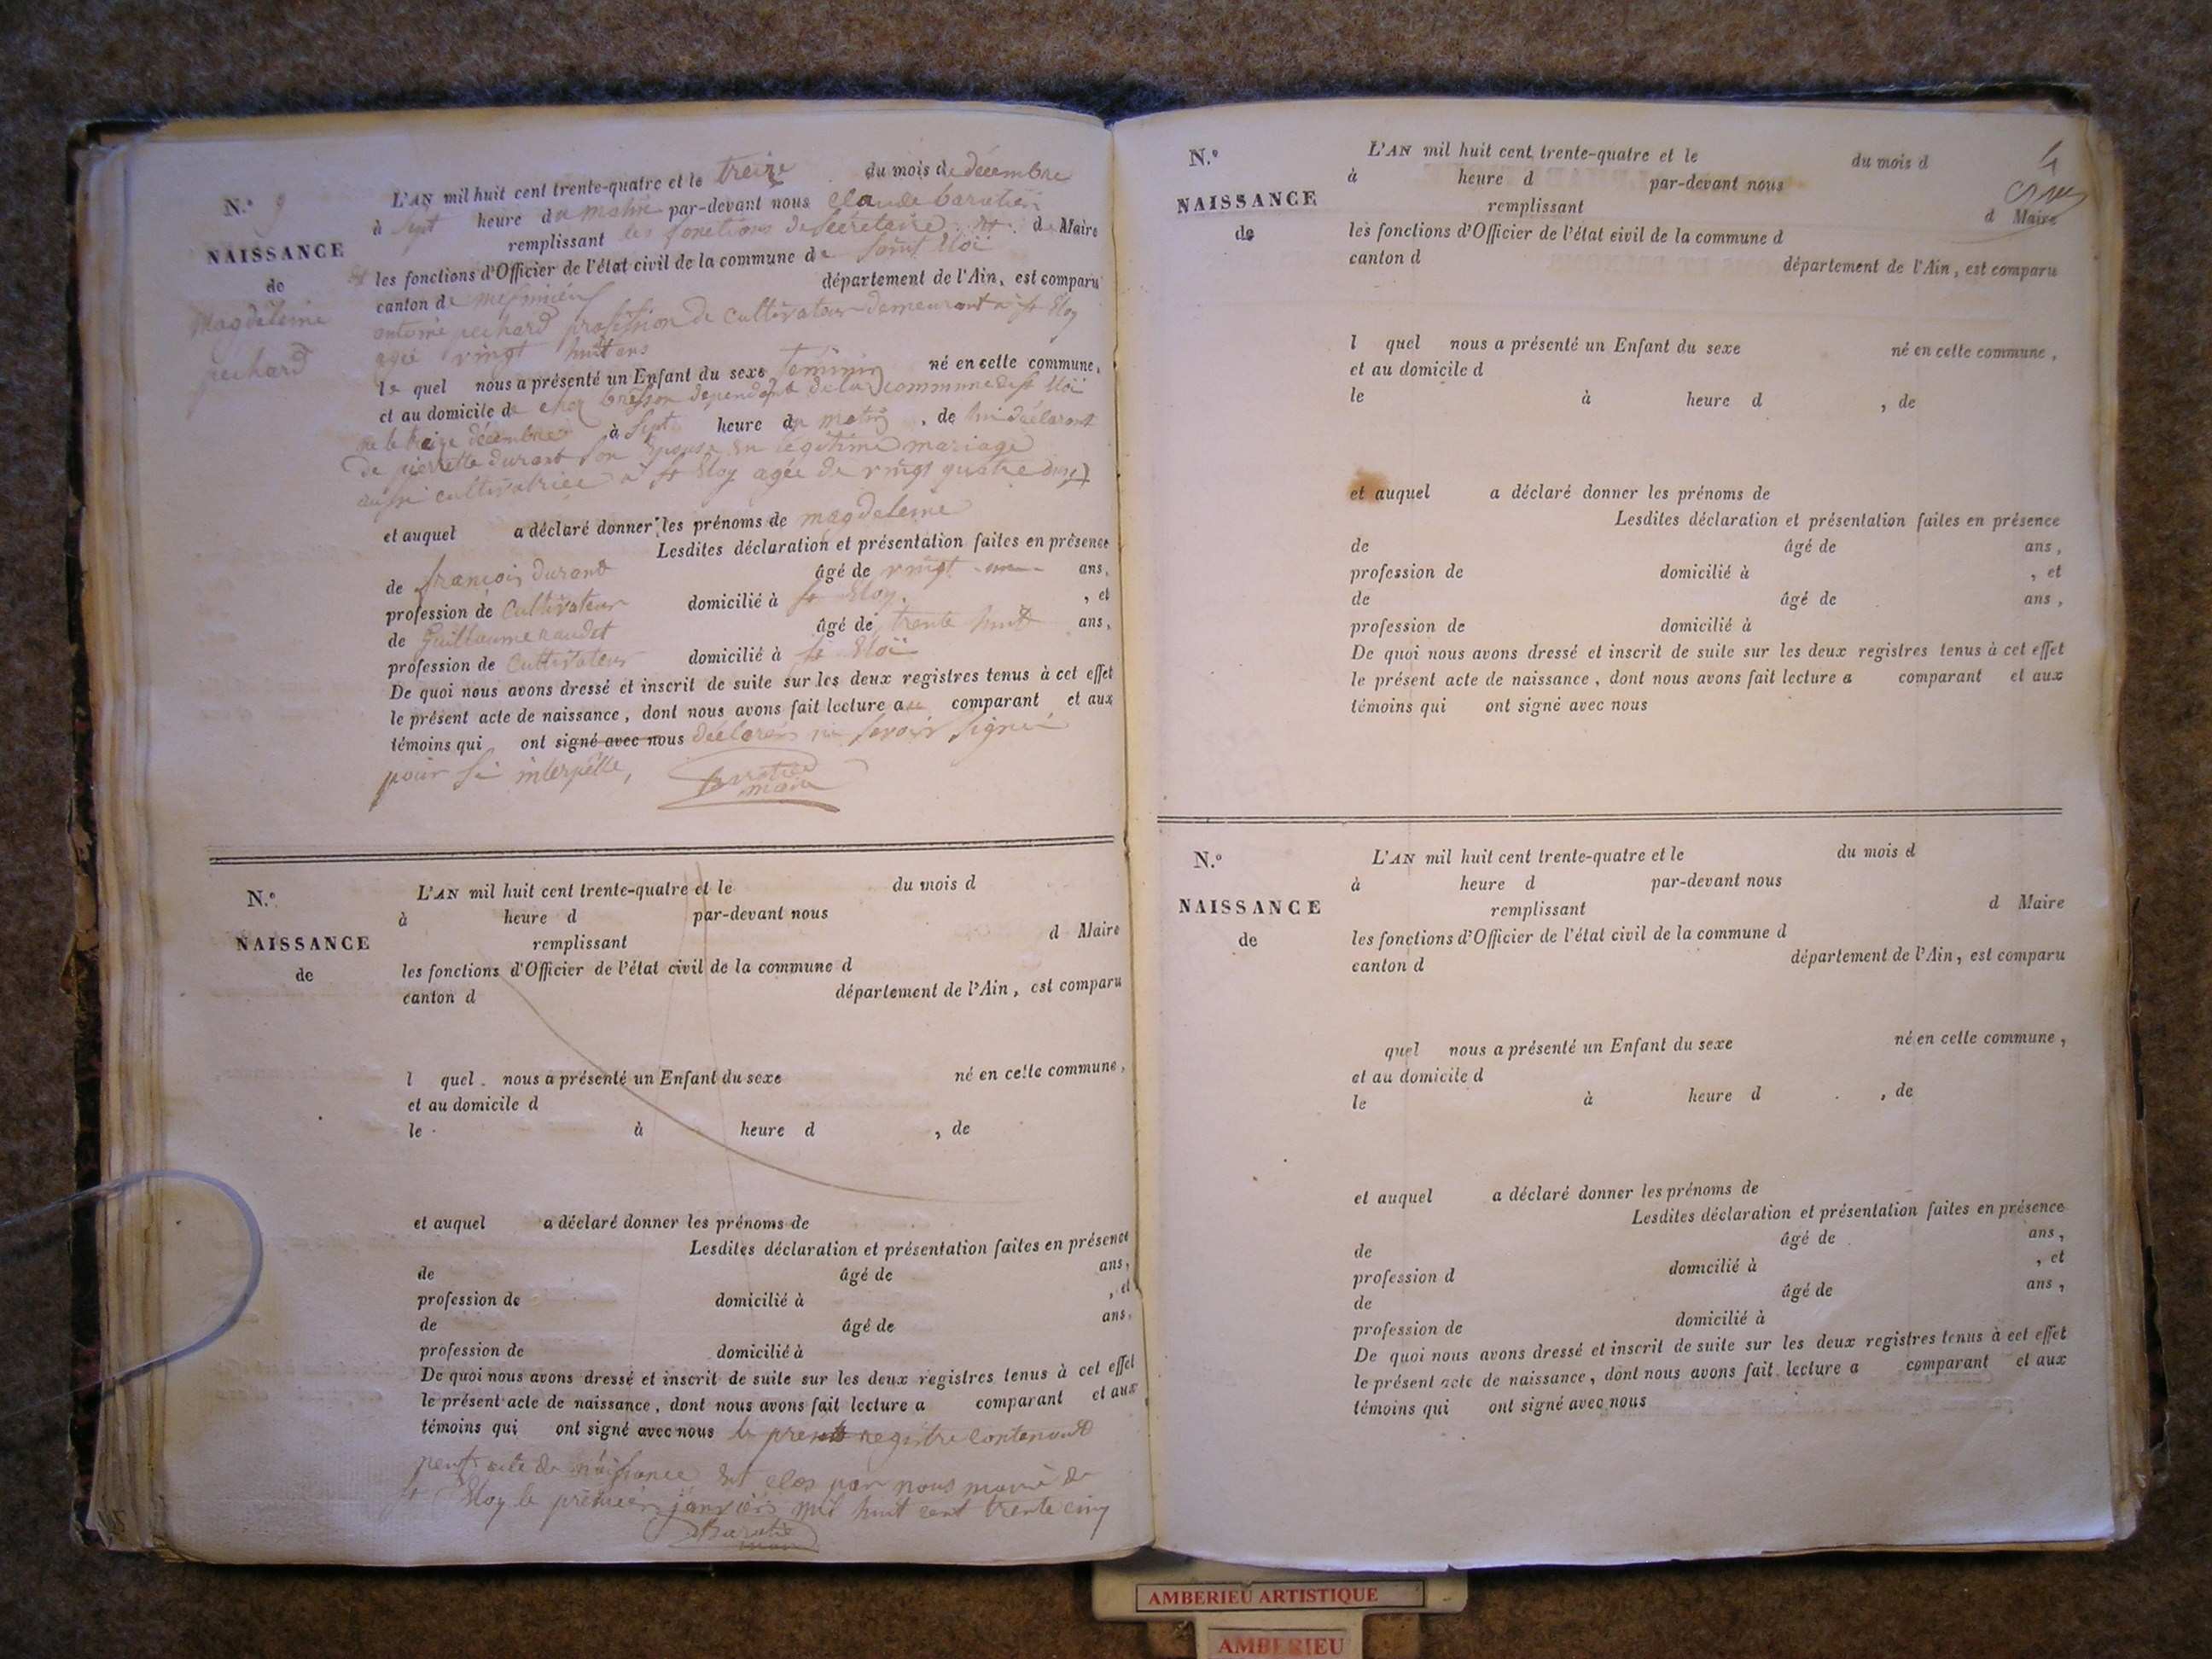 N.º 9
NAISSANCE
de
Magdeleine
pechard
L'AN mil huit cent trente-quatre et le treize du mois de décembre
à sept heure du matin par-devant nous claude baratier
remplissant les fonctions de Secretaire d Maire
les fonctions d'Officier de l'état civil de la commune de saint Eloi
canton de département de l'Ain, est comparu
antoine pechard profession de cultivateur demeurant à st Eloy
agé vingt huit ans
le quel nous a présenté un Enfant du sexe féminin né en cette commune,
et au domicile de chez dependant de la commune de st Eloi
né le treize décembre à sept heure du matin, de lui déclarant
de pierrette durand son Epouse en légitime mariage
aussi cultivatrice à st Eloy agée de vingt quatre
et auquel a déclaré donner les prénoms de magdeleine
Lesdites déclaration et présentation faites en présence
de françois durand âgé de vingt ans,
profession de Cultivateur domicilié à st Eloy, et
de Guillaume âgé de trente huit ans,
profession de Cultivateur domicilié à st Eloi
De quoi nous avons dressé et inscrit de suite sur les deux registres tenus à cet effet
le présent acte de naissance, dont nous avons fait lecture au comparant et aux
témoins qui ont signé avec nous déclarer ne savoir signer
pour interpellé,
maire
N.º
NAISSANCE
de
L'AN mil huit cent trente-quatre et le du mois d
à heure d par-devant nous
remplissant d Maire
les fonctions d'Officier de l'état civil de la commune d
canton d département de l'Ain, est comparu
l quel nous a présenté un Enfant du sexe né en cette commune,
et au domicile d
le à heure d , de
et auquel a déclaré donner les prénoms de
Lesdites déclaration et présentation faites en présence
de âgé de ans,
profession de domicilié à , et
de âgé de ans,
profession de domicilié à
De quoi nous avons dressé et inscrit de suite sur les deux registres tenus à cet effet
le présent acte de naissance, dont nous avons fait lecture a comparant et aux
témoins qui ont signé avec nous le registre contenant
neuf acte de naissance est clos par nous maire de
st Eloy le premier janvier mil huit cent trente cinq
N.º
NAISSANCE
de
L'AN mil huit cent trente-quatre et le du mois d
à heure d par-devant nous
remplissant d Maire
les fonctions d'Officier de l'état civil de la commune d
canton d département de l'Ain, est comparu
l quel nous a présenté un Enfant du sexe né en cette commune,
et au domicile d
le à heure d , de
et auquel a déclaré donner les prénoms de
Lesdites déclaration et présentation faites en présence
de âgé de ans,
profession de domicilié à , et
de âgé de ans,
profession de domicilié à
De quoi nous avons dressé et inscrit de suite sur les deux registres tenus à cet effet
le présent acte de naissance, dont nous avons fait lecture a comparant et aux
témoins qui ont signé avec nous
N.º
NAISSANCE
de
L'AN mil huit cent trente-quatre et le du mois d
à heure d par-devant nous
remplissant d Maire
les fonctions d'Officier de l'état civil de la commune d
canton d département de l'Ain, est comparu
quel nous a présenté un Enfant du sexe né en cette commune,
et au domicile d
le à heure d , de
et auquel a déclaré donner les prénoms de
Lesdites déclaration et présentation faites en présence
de âgé de ans,
profession d domicilié à , et
de âgé de ans,
profession de domicilié à
De quoi nous avons dressé et inscrit de suite sur les deux registres tenus à cet effet
le présent acte de naissance, dont nous avons fait lecture a comparant et aux
témoins qui ont signé avec nous
AMBERIEU ARTISTIQUE
AMBERIEU